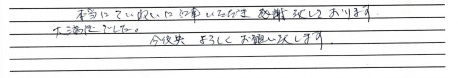 本当にていねいに対応いただき 感謝致しております。
大満足でした。
今後共 よろしく お願い致します。